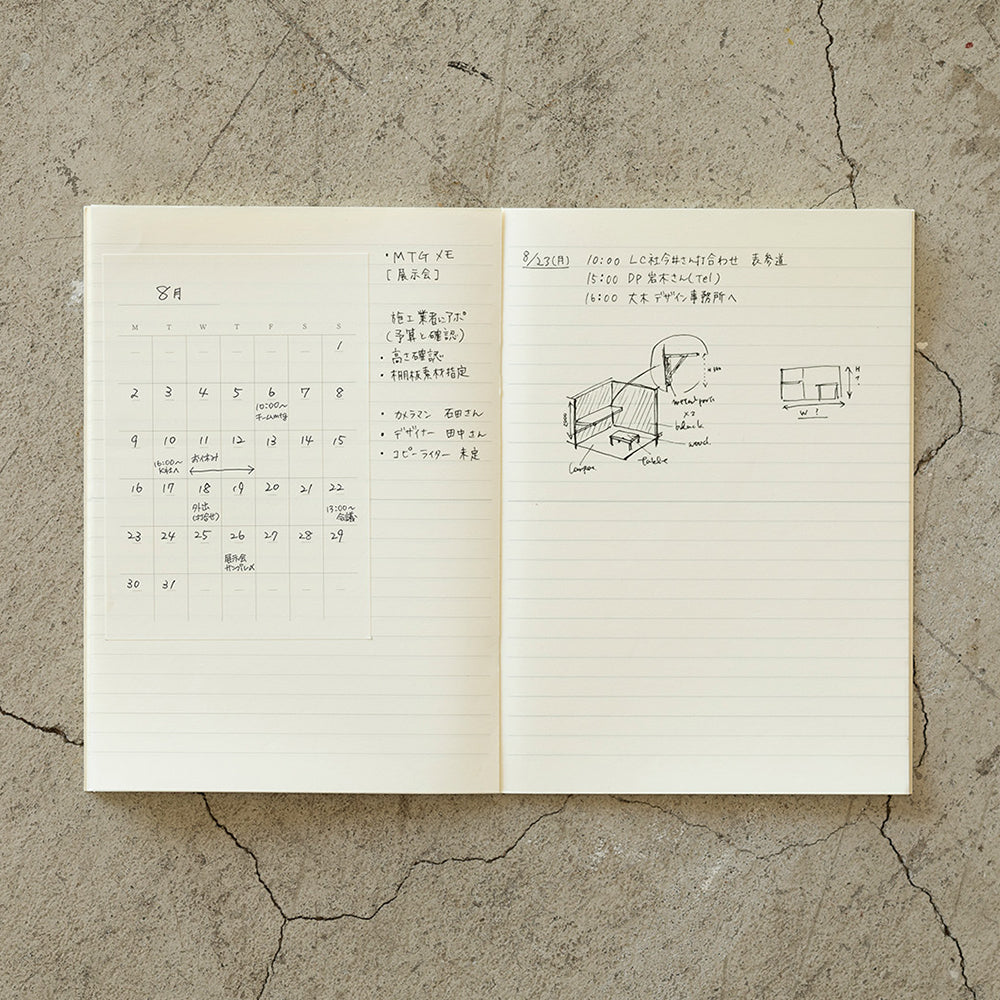 8月
M T W T F S S
1
2 3 4 5 6 7 8
10:00〜
チームmtg
9 10 11 12 13 14 15
16:00〜
K社へ
お休み
16 17 18 19 20 21 22
外出
(打合せ)
13:00〜
会議
23 24 25 26 27 28 29
展示会
サンプル〆
30 31
・MTGメモ
[展示会]
施工業者にアポ
(予算と確認)
・高さ確認
・棚板素材指定
・カメラマン 石田さん
・デザイナー 田中さん
・コピーライター 未定
8/23(月) 10:00 LC社今井さん打合わせ 表参道
15:00 DP 岩木さん(Tel)
16:00 大木デザイン事務所へ
x2
black
wood
table
H
?
W ?